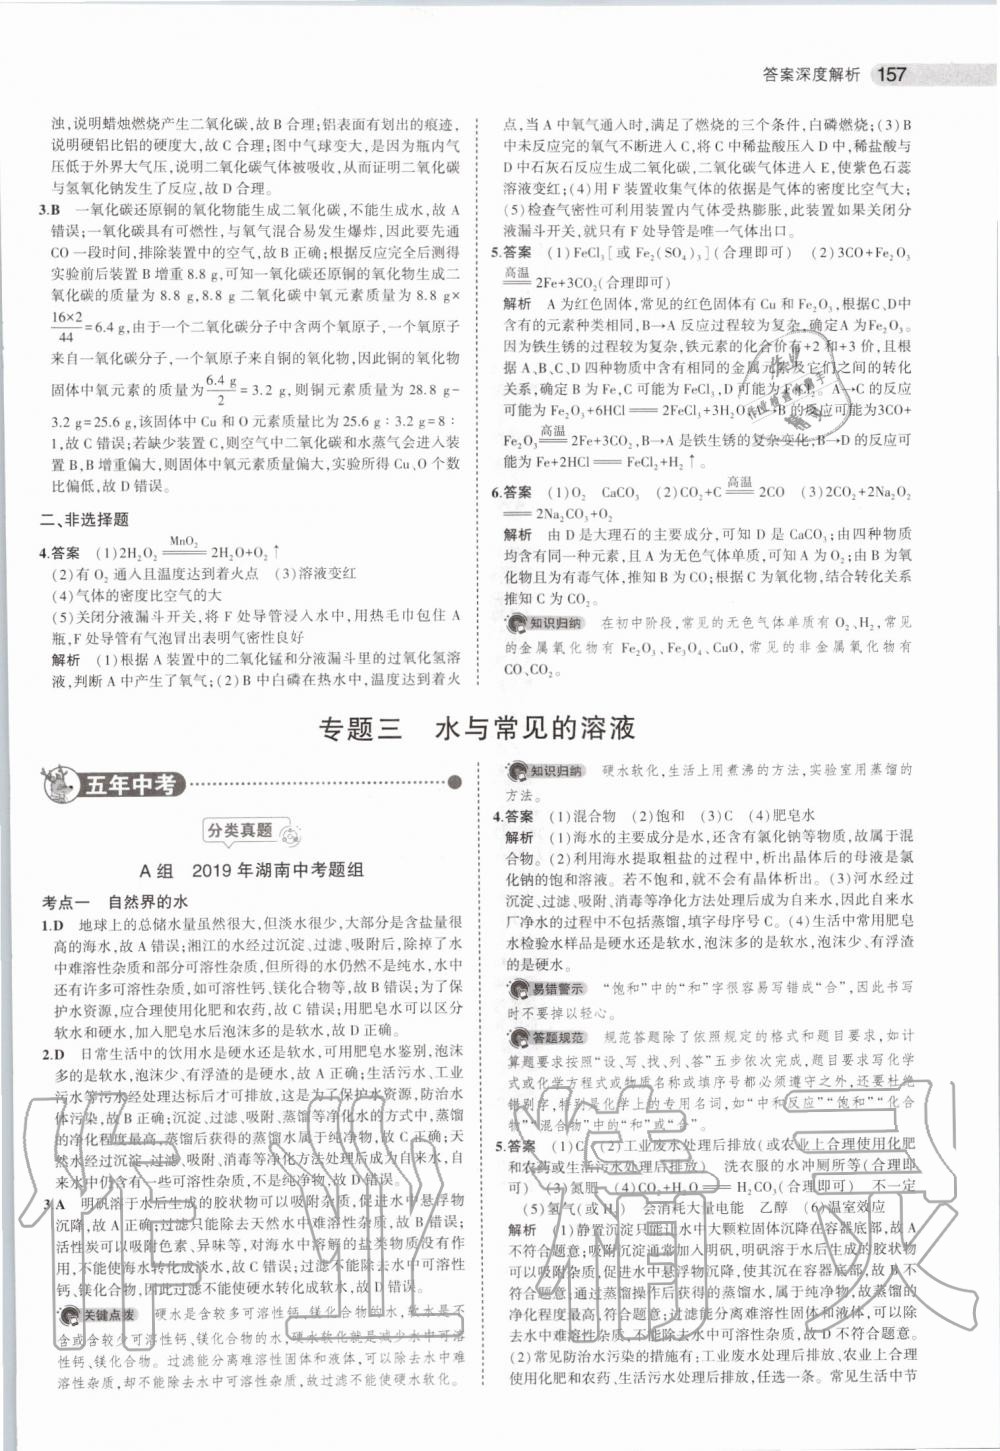 答案深度解析 157
浊,说明蜡烛燃烧产生二氧化碳,故 B 合理;铝表面有划出的痕迹,
说明硬铝比铝的硬度大,故 C 合理;图中气球变大,是因为瓶内气
压低于外界大气压,说明二氧化碳气体被吸收,从而证明二氧化碳
与氢氧化钠发生了反应,故 D 合理。
3.B 一氧化碳还原铜的氧化物能生成二氧化碳,不能生成水,故 A
错误;一氧化碳具有可燃性,与氧气混合易发生爆炸,因此要先通
CO 一段时间,排除装置中的空气,故 B 正确;根据反应完全后测得
实验前后装置 B 增重 8.8 g,可知一氧化碳还原铜的氧化物生成二
氧化碳的质量为 8.8 g,8.8 g 二氧化碳中氧元素质量为 8.8 g×
16×2/44=6.4 g,由于一个二氧化碳分子中含两个氧原子,一个氧原子
来自一氧化碳分子,一个氧原子来自铜的氧化物,因此铜的氧化物
固体中氧元素的质量为6.4 g/2= 3.2 g,则铜元素质量为 28.8 g-
3.2 g=25.6 g,该固体中 Cu 和 O 元素质量比为 25.6 g∶3.2 g=8∶
1,故 C 错误;若缺少装置 C,则空气中二氧化碳和水蒸气会进入装
置 B,B 增重偏大,则固体中氧元素质量偏大,求得实际 Cu、O 个数
比偏低,故 D 错误。
二、非选择题
4.答案 (1)2H₂O₂ =MnO₂= 2H₂O+O₂↑
(2)有 O₂ 通入且温度达到着火点 (3)溶液变红
(4)气体的密度比空气的大
(5)关闭分液漏斗开关,将 F 处导管浸入水中,用热毛巾包住 A
瓶,F 处导管有气泡冒出表明气密性良好
解析 (1)根据 A 装置中的二氧化锰和分液漏斗里的过氧化氢溶
液,判断 A 中产生了氧气;(2)B 中白磷在热水中,温度达到着火
点,当 A 中氧气通入时,满足了燃烧的三个条件,白磷燃烧;(3)B
中未反应完的氧气不断进入 C,将 C 中稀盐酸压入 D 中,稀盐酸与
D 中石灰石反应生成二氧化碳,二氧化碳气体进入 E,使紫色石蕊
溶液变红;(4)用 F 装置收集气体的依据是气体的密度比空气大;
(5)检查气密性可利用装置内气体受热膨胀,此装置如果关闭分
液漏斗开关,就只有 F 处导管是唯一气体出口。
5.答案 (1)FeCl₃[或 Fe₂(SO₄)₃](合理即可) (2)3CO+Fe₂O₃
=高温= 2Fe+3CO₂(合理即可)
解析 A 为红色固体,常见的红色固体有 Cu 和 Fe₂O₃,根据C、D
中含有的元素种类相同,B→A 反应过程较为复杂,确定A为Fe₂O₃。
因为铁生锈的过程较为复杂,铁元素的化合价有+2 和+3 价,且根
据 A、B、C、D 四种物质中含有相同的金属元素及它们之间的转化
关系,确定 B 为 Fe,C 可能为 FeCl₃,D 可能为 FeCl₂。A→C 的反应
可能为 Fe₂O₃+6HCl══2FeCl₃+3H₂O,A→B 的反应可能为3CO+
Fe₂O₃=高温=2Fe+3CO₂,B→A 是铁生锈的复杂变化,B→D 的反应可
能为 Fe+2HCl══FeCl₂+H₂↑。
6.答案 (1)O₂ CaCO₃ (2)CO₂+C=高温=2CO (3)2CO₂+2Na₂O₂
══2Na₂CO₃+O₂
解析 由 D 是大理石的主要成分,可知 D 是 CaCO₃;由四种物质
均含有同一种元素,且 A 为无色气体单质,可知 A 为 O₂;由 B 为氧
化物且为有毒气体,推知 B 为 CO;根据 C 为氧化物,结合转化关系
推知 C 为 CO₂。
知识归纳 在初中阶段,常见的无色气体单质有 O₂、H₂,常见
的金属氧化物有 Fe₂O₃、Fe₃O₄、CuO,常见的非金属氧化物有
CO、CO₂。
专题三 水与常见的溶液
五年中考
分类真题
A 组 2019 年湖南中考题组
考点一 自然界的水
1.D 地球上的总储水量虽然很大,但淡水很少,大部分是含盐量很
高的海水,故 A 错误;湘江的水经过沉淀、过滤、吸附后,除掉了水
中难溶性杂质和部分可溶性杂质,但所得的水仍然不是纯水,水中
还有许多可溶性杂质,如可溶性钙、镁化合物等,故 B 错误;为了保
护水资源,应合理使用化肥和农药,故 C 错误;用肥皂水可以区分
软水和硬水,加入肥皂水后泡沫多的是软水,故 D 正确。
2.D 日常生活中的饮用水是硬水还是软水,可用肥皂水鉴别,泡沫
多的是软水,泡沫少、有浮渣的是硬水,故 A 正确;生活污水、工业
污水等污水经处理达标后才可排放,这是为了保护水资源,防治水
体污染,故 B 正确;沉淀、过滤、吸附、蒸馏等净化水的方式中,蒸馏
的净化程度最高,蒸馏后获得的蒸馏水属于纯净物,故 C 正确;天
然水经过沉淀、过滤、吸附、消毒等净化方法处理后成为自来水,自
来水中仍含有一些可溶性杂质,不是纯净物,故 D 错误。
3.A 明矾溶于水后生成的胶状物可以吸附杂质,促进水中悬浮物
沉降,故 A 正确;过滤只能除去天然水中难溶性杂质,故 B 错误;
活性炭可以吸附色素、异味等,对海水中的盐类物质没有作
用,不能使海水转化成淡水,故 C 错误;过滤不能除去水中可溶性
钙、镁化合物,因此过滤不能使硬水转化成软水,故 D 错误。
关键点拨 硬水是含较多可溶性钙、镁化合物的水,软水是不
含或含较少可溶性钙、镁化合物的水,硬水软化就是减少水中可溶
性钙、镁化合物。过滤能分离难溶性固体和液体,可以除去水中难
溶性杂质,却不能除去可溶性杂质,故过滤不能使硬水软化。
知识归纳 硬水软化,生活上用煮沸的方法,实验室用蒸馏的
方法。
4.答案 (1)混合物 (2)饱和 (3)C (4)肥皂水
解析 (1)海水的主要成分是水,还含有氯化钠等物质,故属于混
合物。(2)利用海水提取粗盐的过程中,析出晶体后的母液是氯
化钠的饱和溶液。若不饱和,就不会有晶体析出。(3)河水经过
沉淀、过滤、吸附、消毒等净化方法处理后成为自来水,因此自来水
厂净水的过程中不包括蒸馏,填字母序号 C。(4)生活中常用肥皂
水检验水样品是硬水还是软水,泡沫多的是软水,泡沫少、有浮渣
的是硬水。
易错警示 “饱和”中的“和”字很容易写错成“合”,因此书写
时不要掉以轻心。
答题规范 规范答题除了依照规定的格式和题目要求,如计
算题要求按照“设、写、找、列、答”五步依次完成,题目要求写化学
式或化学方程式或物质名称或填序号都必须遵守之外,还要杜绝
错别字,特别是化学上的专用名词,如“中和反应”“饱和”“化合
物”“混合物”中的“和”或“合”。
5.答案 (1)C (2)工业废水处理后排放(或农业上合理使用化肥
和农药或生活污水处理后排放) 洗衣服的水冲厕所等(合理即
可) (3)氮肥 (4)CO₂+H₂O══H₂CO₃(合理即可) 不一定
(5)氢气(或 H₂) 会消耗大量电能 乙醇 (6)温室效应
解析 (1)静置沉淀只能让水中大颗粒固体沉降在容器底部,故 A
不符合题意;吸附沉淀通常加入明矾,明矾溶于水后生成的胶状物
可以吸附杂质,促进水中悬浮物沉降,使其沉在容器底部,故 B 不
符合题意;蒸馏操作后获得的蒸馏水,属于纯净物,故蒸馏的
净化程度最高,符合题意;过滤能分离难溶性固体和液体,可以除
去水中难溶性杂质,但不能除去可溶性杂质,故 D 不符合题意。
(2)常见防治水污染的措施有:工业废水处理后排放、农业上合理
使用化肥和农药、生活污水处理后排放,任选一条。常见生活中节
作业精灵